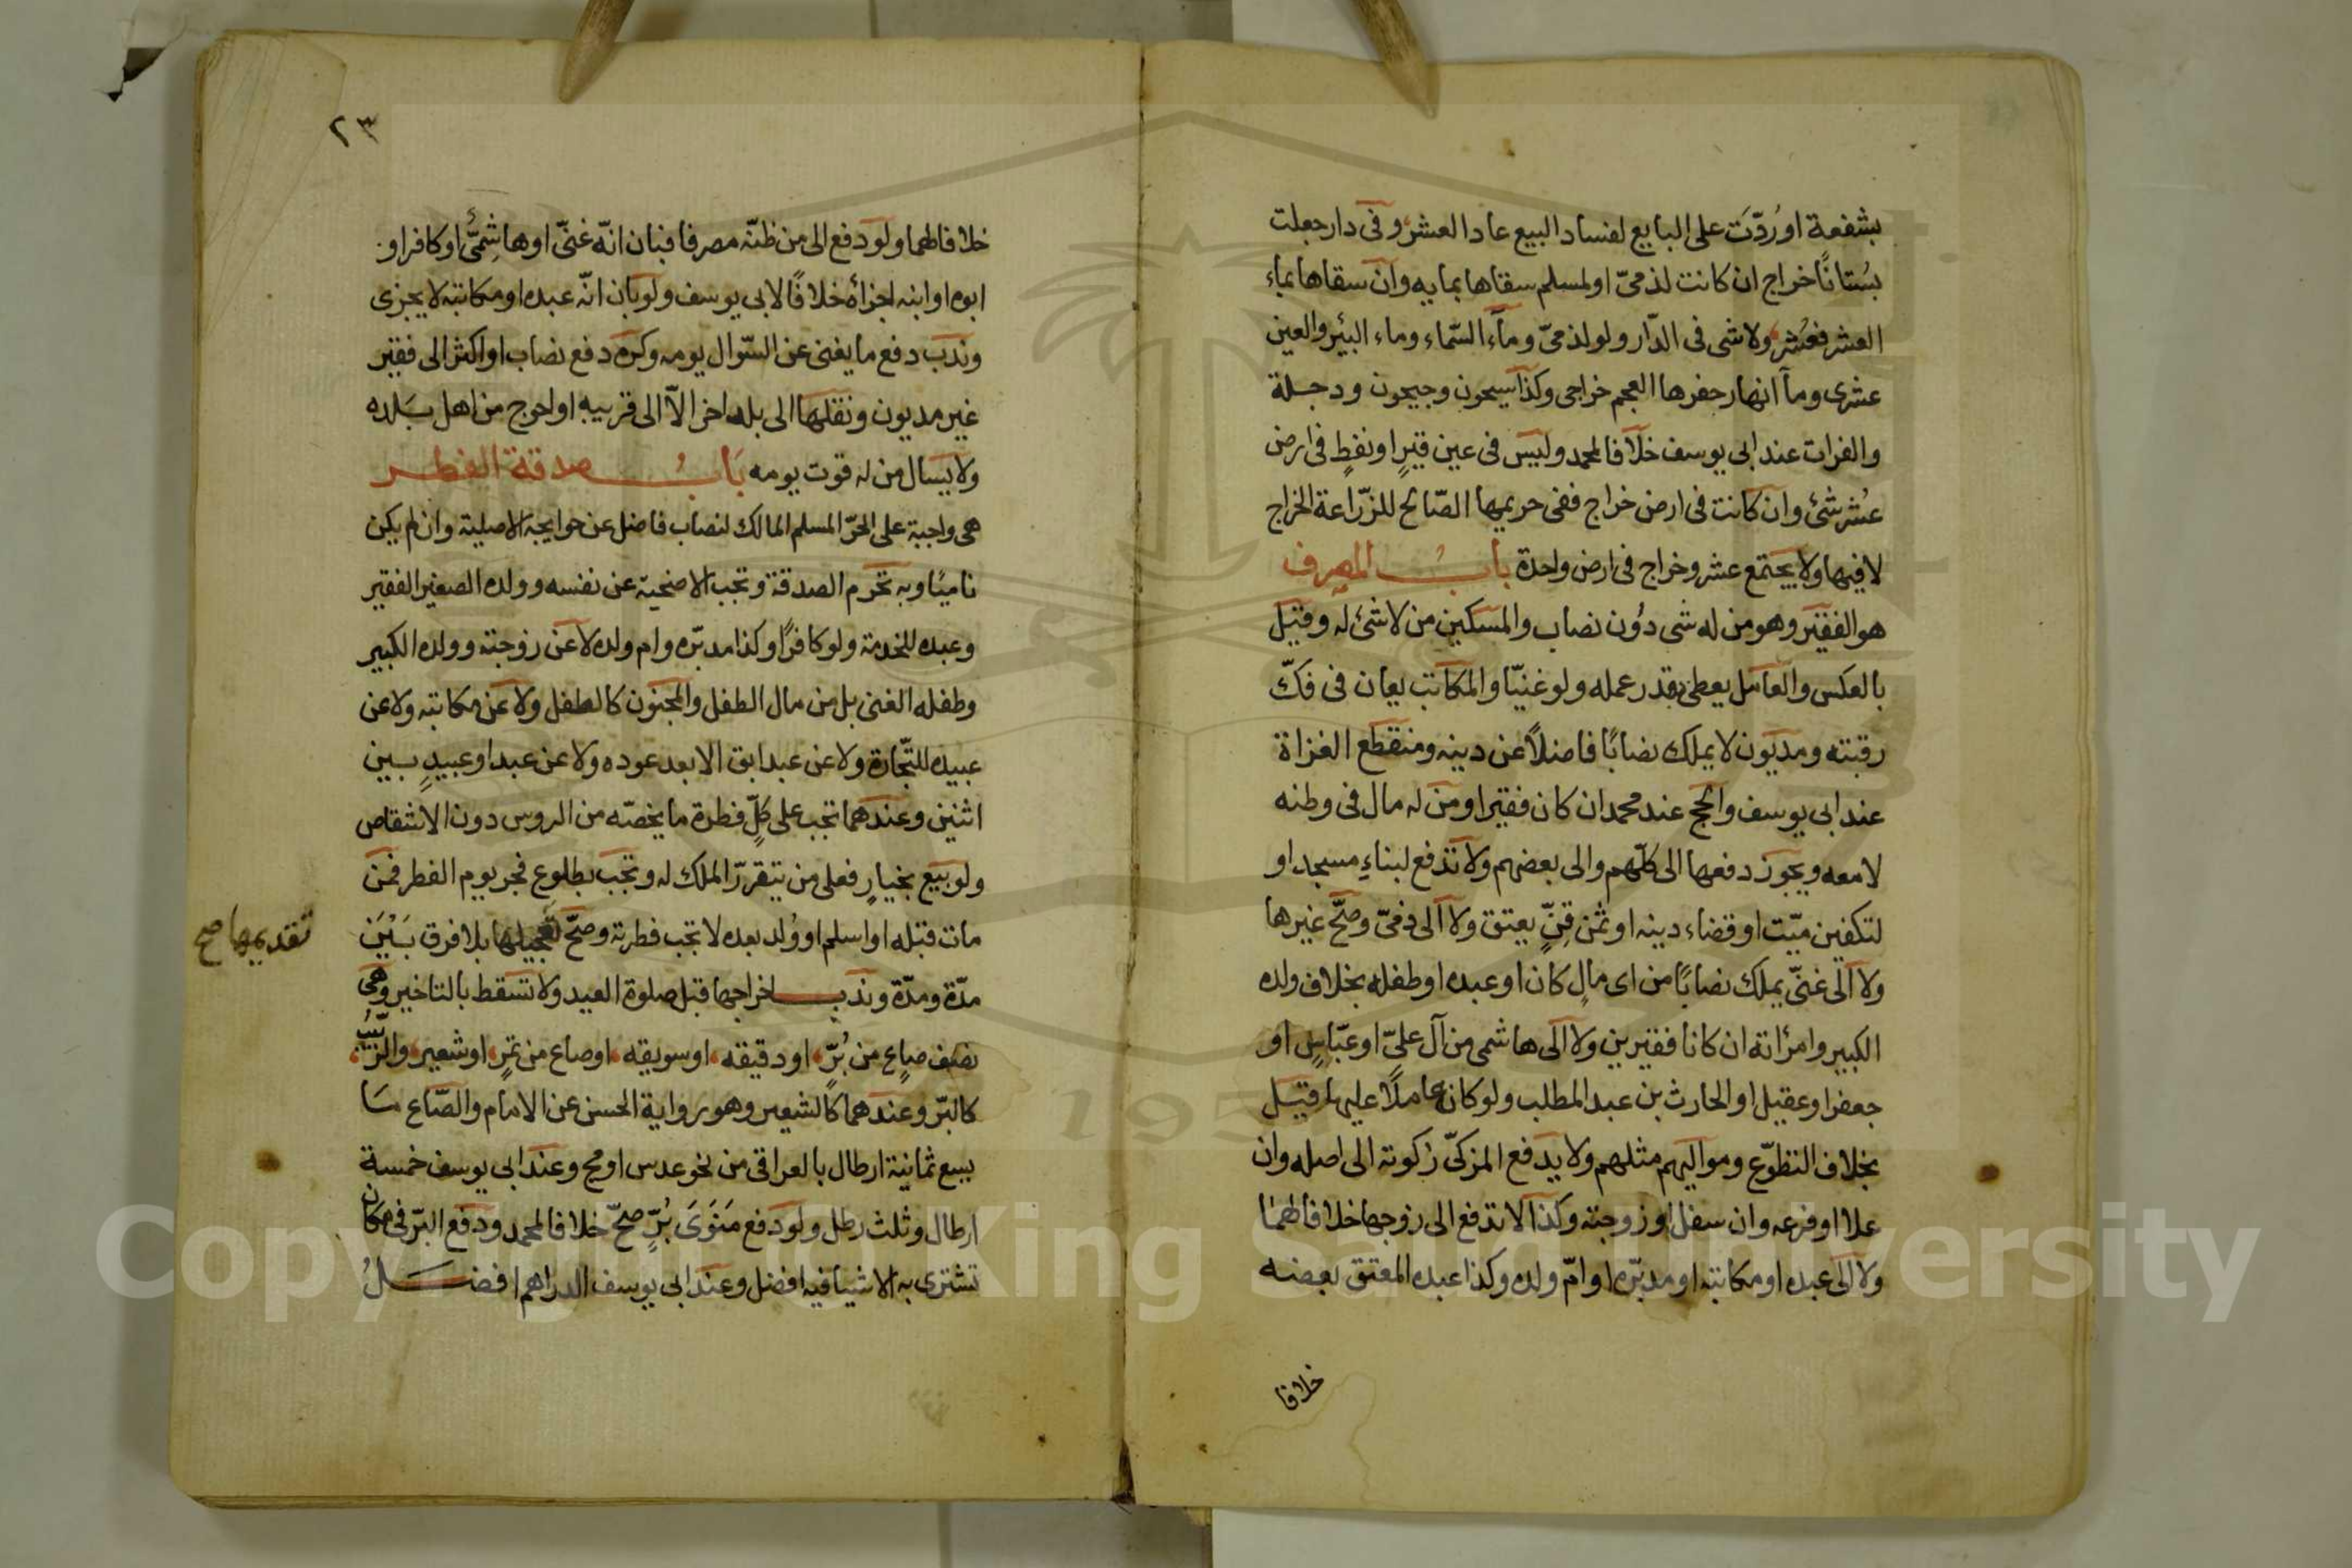 بشفعة او رُدّت على البايع لفساد البيع عاد العشر وفى دار جعلت
بستانًا خراج ان كانت لذمىّ او لمسلم سقاها بمايه وان سقاها بماء
العشر فعُشر ولا شى فى الدّار ولو لذمىّ وماء السّماء وماء البئر والعين
عشرى وماء انهار حفرها العجم خراجى وكذا سيحون وجيحون ودجلة
والفرات عند ابى يوسف خلافا لمحمد وليس فى عين قيرٍ او نفطٍ فى ارض
عُشر شئ وان كانت فى ارض خراج ففى حريمها الصّالح للزّراعة الخراج
لا فيها ولا يجتمع عشر وخراج فى ارض واحدة بابُ المصرف
هو الفقير وهو من له شى دُون نصاب والمسكين من لا شئ له وقيل
بالعكس والعامل يعطى بقدر عمله ولو غنيّا والمكاتب يعان فى فكّ
رقبته ومديون لا يملك نصابًا فاضلاً عن دينه ومنقطع الغزاة
عند ابى يوسف والحج عند محمد ان كان فقيرا ومن له مال فى وطنه
لا معه ويجوز دفعها الى كلّهم والى بعضهم ولا تدفع لبناءِ مسجد او
لتكفين ميّت او قضاء دينه او ثمن قِنٍّ يعتق ولا الى ذمىّ وصحّ غيرها
ولا الى غنىّ يملك نصابًا من اى مالٍ كان او عبده او طفله بخلاف ولده
الكبير وامرأته ان كانا فقيرين ولا الى هاشمى من آل علىّ او عبّاسٍ او
جعفر او عقيل او الحارث بن عبد المطلب ولو كان عاملًا عليها وقيل
بخلاف التطوّع ومواليهم مثلهم ولا يدفع المزكّى زكوته الى اصله وان
علا او فرعه وان سفل او زوجته وكذا لا تدفع الى زوجها خلافا لهما
ولا الى عبده او مكاتبه او مدبّره او امّ ولده وكذا عبده المعتق بعضه
خلافا
٢٣
خلافا لهما ولو دفع الى من ظنّه مصرفا فبان انّه غنىّ او هاشِمىّ او كافر او
ابوه او ابنه اجزأه خلافًا لابى يوسف ولو بان انّه عبده او مكاتبه لا يجزى
وندب دفع ما يغنى عن السّوال يومه وكره دفع نصاب او اكثر الى فقير
غير مديون ونقلها الى بلد اخر الاّ الى قريبه او احوج من اهل بَلده
ولا يسال من له قوت يومه بَابُ صدقة الفطر
هى واجبة على الحرّ المسلم المالك لنصاب فاضل عن حوايجه الاصلية وان لم يكن
ناميًا وبه تحرم الصدقة وتجب الاضحية عن نفسه وولده الصغير الفقير
وعبده للخدمة ولو كافرًا وكذا مدبّره وام ولده لا عن زوجته وولده الكبير
وطفله الغنى بل من مال الطفل والمجنون كالطفل ولا عن مكاتبه ولا عن
عبيده للتّجارة ولا عن عبد ابق الا بعد عوده ولا عن عبد او عبيدٍ بين
اثنين وعندهما تجب على كلٍّ فطرة ما يخصّه من الروس دون الاشقاص
ولو بيع بخيارٍ فعلى من يتقرّر الملك له وتجب بطلوع فجر يوم الفطر فمن
مات قبله او اسلم او وُلد بعده لا تجب فطرته وصحّ تعجيلها بلا فرق بَيْنَ
تقديمها صح
مدّة ومدّة وندب اخراجها قبل صلوة العيد ولا تسقط بالتاخير وهى
نصف صاعٍ من بُرٍّ او دقيقه او سويقه او صاع من تمرٍ او شعير والزّبيب
كالبرّ وعندهما كالشعير وهو رواية الحسن عن الامام والصّاع مَا
يسع ثمانية ارطال بالعراقى من نحو عدس او مج وعند ابى يوسف خمسة
ارطال وثلث رطل ولو دفع مَنَوَى بُرٍّ صحّ خلافا لمحمد ودفع البرّ فى مكان
تشترى به الاشيا فيه افضل وعند ابى يوسف الدراهم افضَلُ
Copyright © King Saud University
1957